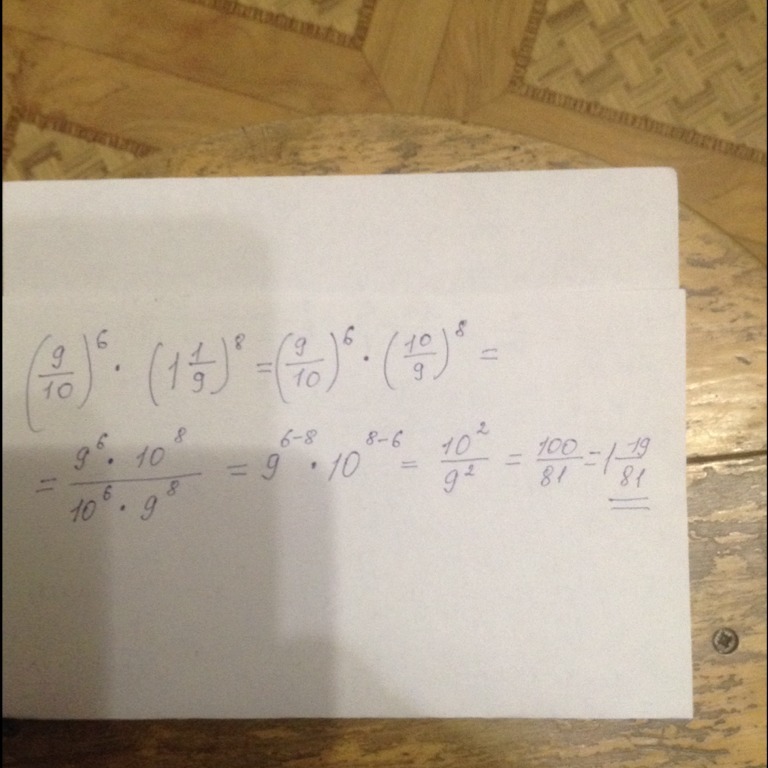 (9/10)^6 · (1 1/9)^8 = (9/10)^6 · (10/9)^8 =
= (9^6 · 10^8)/(10^6 · 9^8) = 9^(6-8) · 10^(8-6) = 10^2/9^2 = 100/81 = 1 19/81